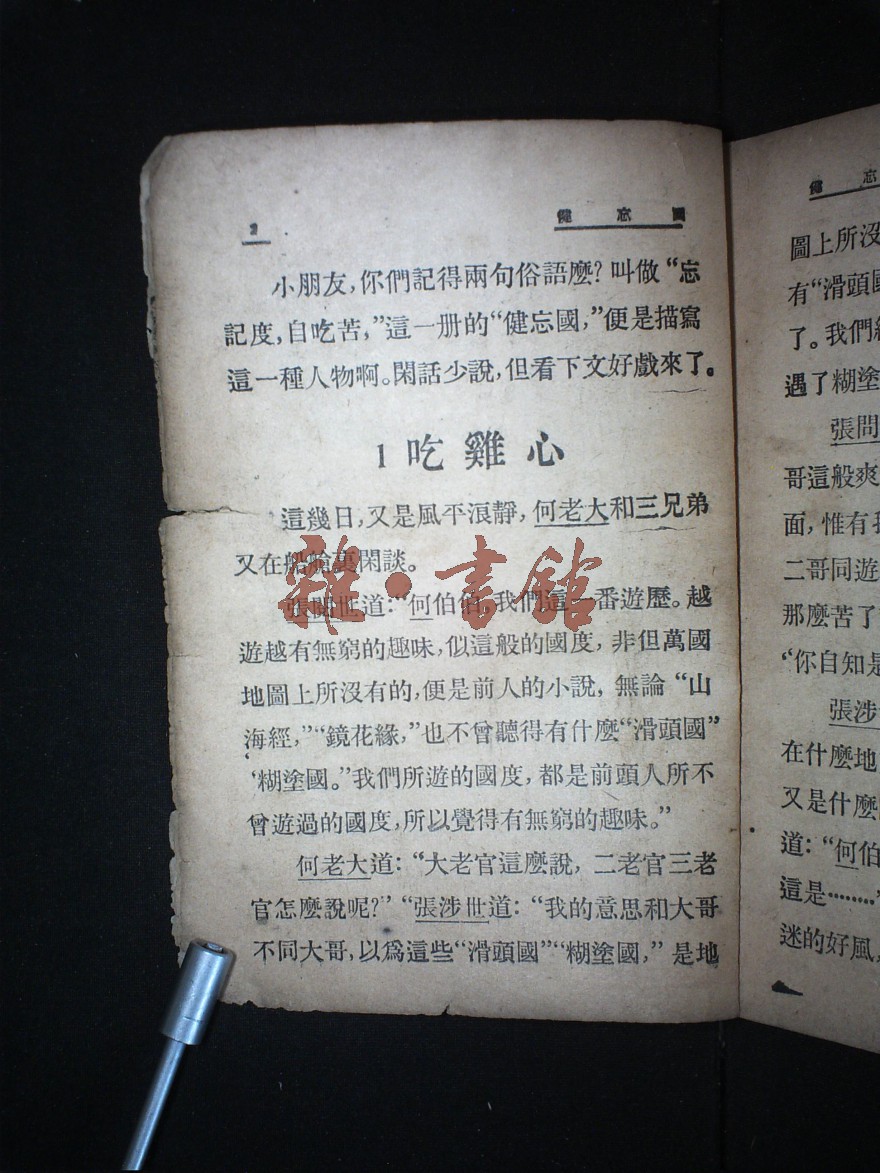 2
健忘國
小朋友,你們記得兩句俗語麼?叫做“忘
記度,自吃苦,”這一册的“健忘國,”便是描寫
這一種人物啊。閑話少說,但看下文好戲來了。
1 吃雞心
這幾日,又是風平浪靜,何老大和三兄弟
又在船艙裏閑談。
張問世道:“何伯伯,我們這一番遊歷。越
遊越有無窮的趣味,似這般的國度,非但萬國
地圖上所沒有的,便是前人的小說,無論“山
海經,”“鏡花緣,”也不曾聽得有什麼“滑頭國”
‘糊塗國。”我們所遊的國度,都是前頭人所不
曾遊過的國度,所以覺得有無窮的趣味。”
何老大道:“大老官這麼說,二老官三老
官怎麼說呢?”“張涉世道:“我的意思和大哥
不同大哥,以爲這些“滑頭國”“糊塗國,”是地
雜·書館
健忘
圖上所沒
有“滑頭國
了。我們
遇了糊塗
張問
哥這般爽
面,惟有我
二哥同遊
那麼苦了
“你自知是
張涉
在什麼地
又是什麼
道:“何伯
這是………”
迷的好風,